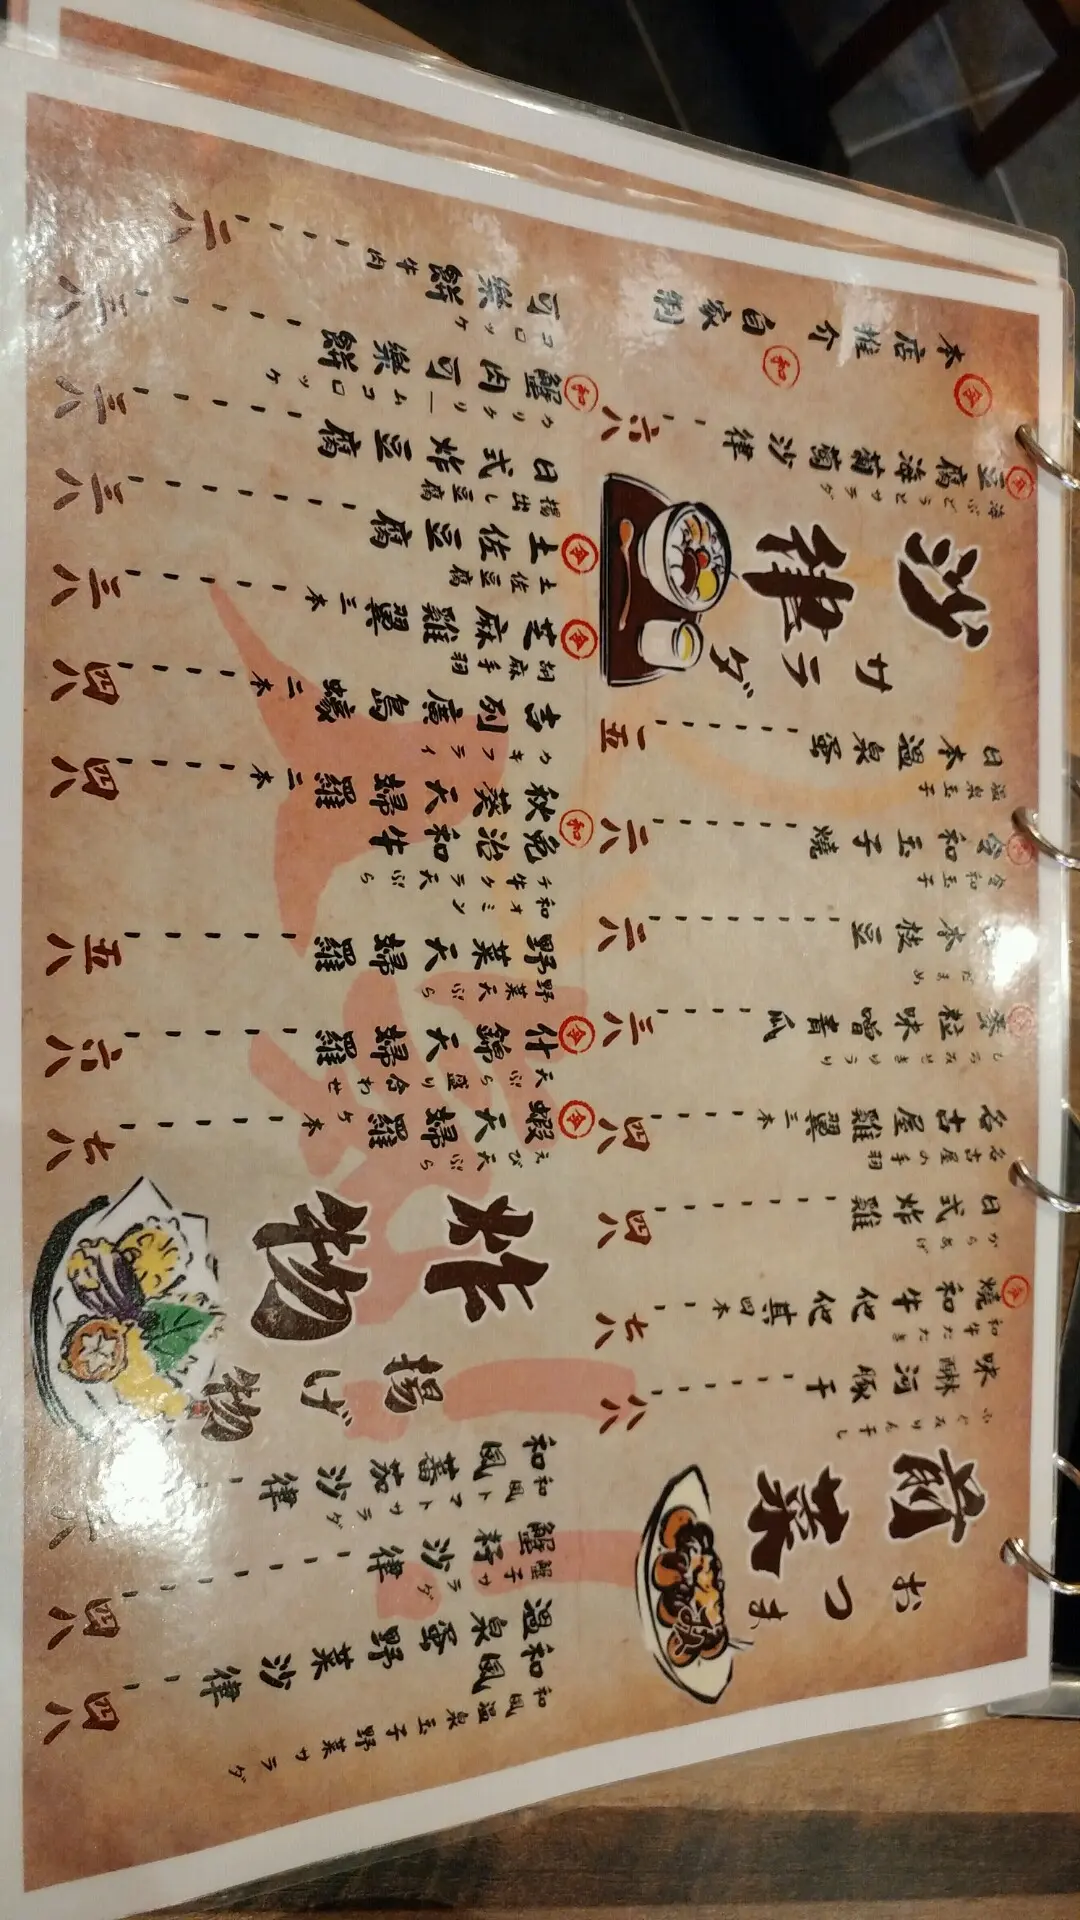 前菜
おつま
味醂河豚干 六八
ふぐみりん干し
燒和牛他他其 四本 七八
和牛たたき
日式炸雞 四八
からあげ
名古屋雞翼 三本 四八
名古屋の手羽
粒味噌青瓜 三八
もろみせきゅうり
本枝豆 二八
だまめ
令和玉子燒 二八
令和玉子
日本溫泉蛋 一五
温泉玉子
沙律
サラダ
豆腐海葡萄沙律 六八
海ぶどうとサラダ
本店推介
和 自家制
和風溫泉蛋野菜沙律 四八
和風温泉玉子野菜サラダ
蟹籽沙律 四八
蟹子サラダ
和風蕃茄沙律
和風トマトサラダ
炸物
揚げ物
蝦天婦羅 ケ本 七八
えび天ぷら
什錦天婦羅 六八
天ぷら盛り合わせ
野菜天婦羅 五八
野菜天ぷら
兔治和牛
秋葵天婦羅 二本 四八
和牛オクラミンチ天ぷら
吉列廣島蠔 二本 四八
カキフライ
芝麻雞翼 三本 三八
胡麻手羽
土佐豆腐 三八
土佐豆腐
日式炸豆腐 三八
揚出し豆腐
和 蟹肉可樂餅 三八
カリクリームコロッケ
可樂餅 牛肉 二八
コロッケ